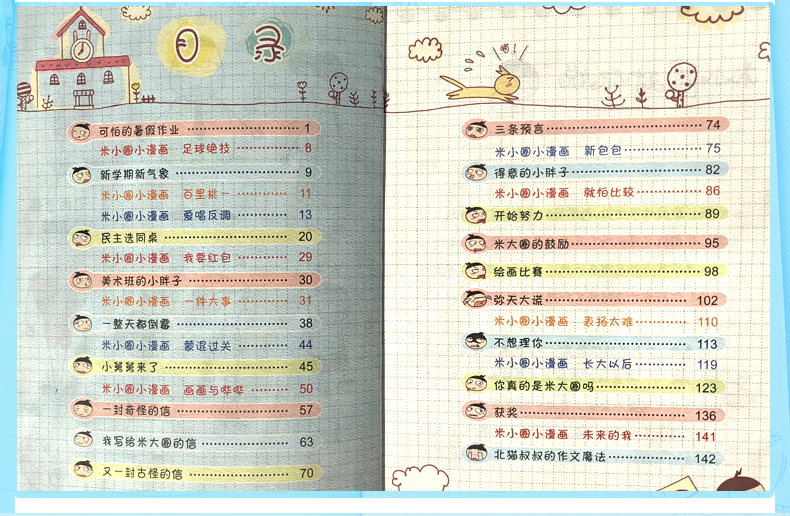 目录
可怕的暑假作业 1
米小圈小漫画 足球绝技 8
新学期新气象 9
米小圈小漫画 百里挑一 11
米小圈小漫画 爱唱反调 13
民主选同桌 20
米小圈小漫画 我要红包 29
美术班的小胖子 30
米小圈小漫画 一件大事 31
一整天都倒霉 38
米小圈小漫画 蒙混过关 44
小舅舅来了 45
米小圈小漫画 画画与哗哗 50
一封奇怪的信 57
我写给米大圈的信 63
又一封古怪的信 70
三条预言 74
米小圈小漫画 新包包 75
得意的小胖子 82
米小圈小漫画 就怕比较 86
开始努力 89
米大圈的鼓励 95
绘画比赛 98
弥天大谎 102
米小圈小漫画 表扬太难 110
不想理你 113
米小圈小漫画 长大以后 119
你真的是米大圈吗 123
获奖 136
米小圈小漫画 未来的我 141
北猫叔叔的作文魔法 142